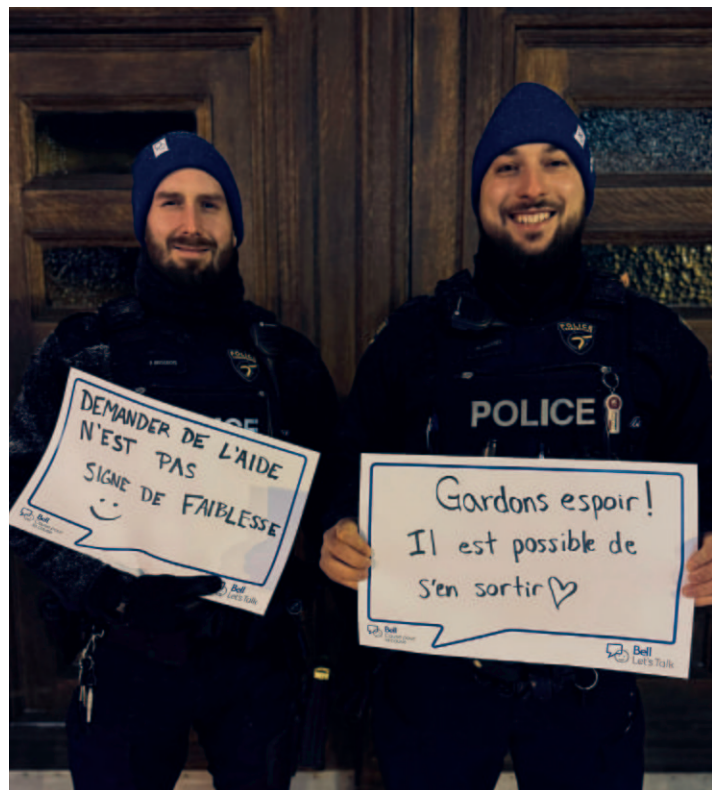 POLICE
DEMANDER DE L'AIDE
N'EST PAS
SIGNE DE FAIBLESSE
Bell
Bell
Let's Talk
POLICE
POLICE
Gardons espoir!
Il est possible de
s'en sortir
Bell
Bell
Let's Talk